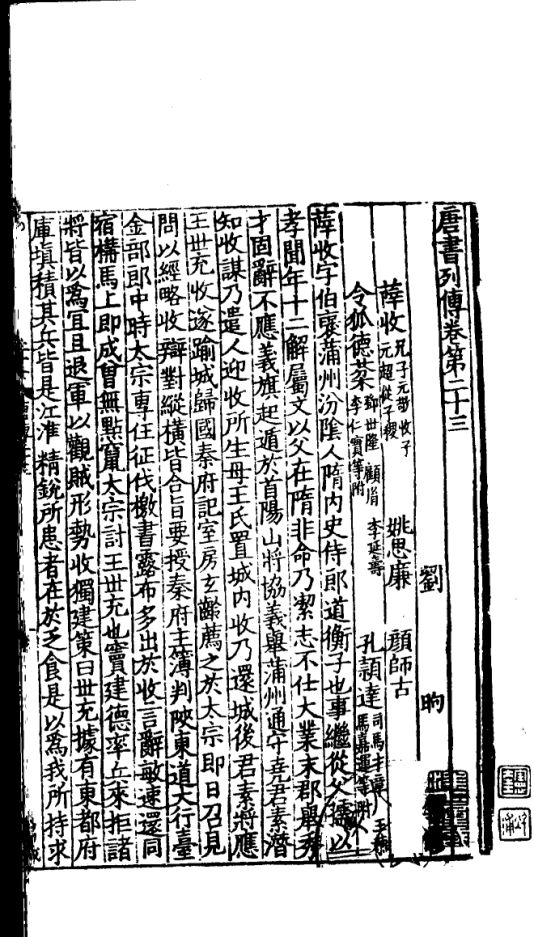 唐書列傳卷第二十三
劉昫
薛收 兄子元敬 收子元超 從子稷 姚思廉 顔師古
令狐德棻 鄧世隆 顧胤 李延壽 李仁實等附 孔穎達 司馬才章 王恭 馬嘉運等附
薛收字伯襃蒲州汾陰人隋内史侍郎道衡子也事繼從父孺以
孝聞年十二解屬文以父在隋非命乃潔志不仕大業末郡舉秀
才固辭不應義旗起遁於首陽山將協義舉蒲州通守堯君素潛
知收謀乃遣人迎收所生母王氏置城内收乃還城後君素將應
王世充收遂踰城歸國秦府記室房玄齡薦之於太宗即日召見
問以經略收辯對縱橫皆合旨要授秦府主簿判陝東道大行臺
金部郎中時太宗專任征伐檄書露布多出於收言辭敏速還同
宿構馬上即成曾無點竄太宗討王世充也竇建德率兵來拒諸
將皆以爲宜且退軍以觀賊形勢收獨建策曰世充據有東都府
庫塡積其兵皆是江淮精銳所患者在於乏食是以爲我所持求